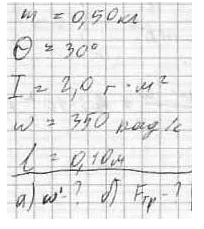 m = 0,50 кг
Θ = 30°
I = 2,0 г · м²
ω = 350 рад/с
l = 0,10 м
а) ω' - ? б) Fтр - ?